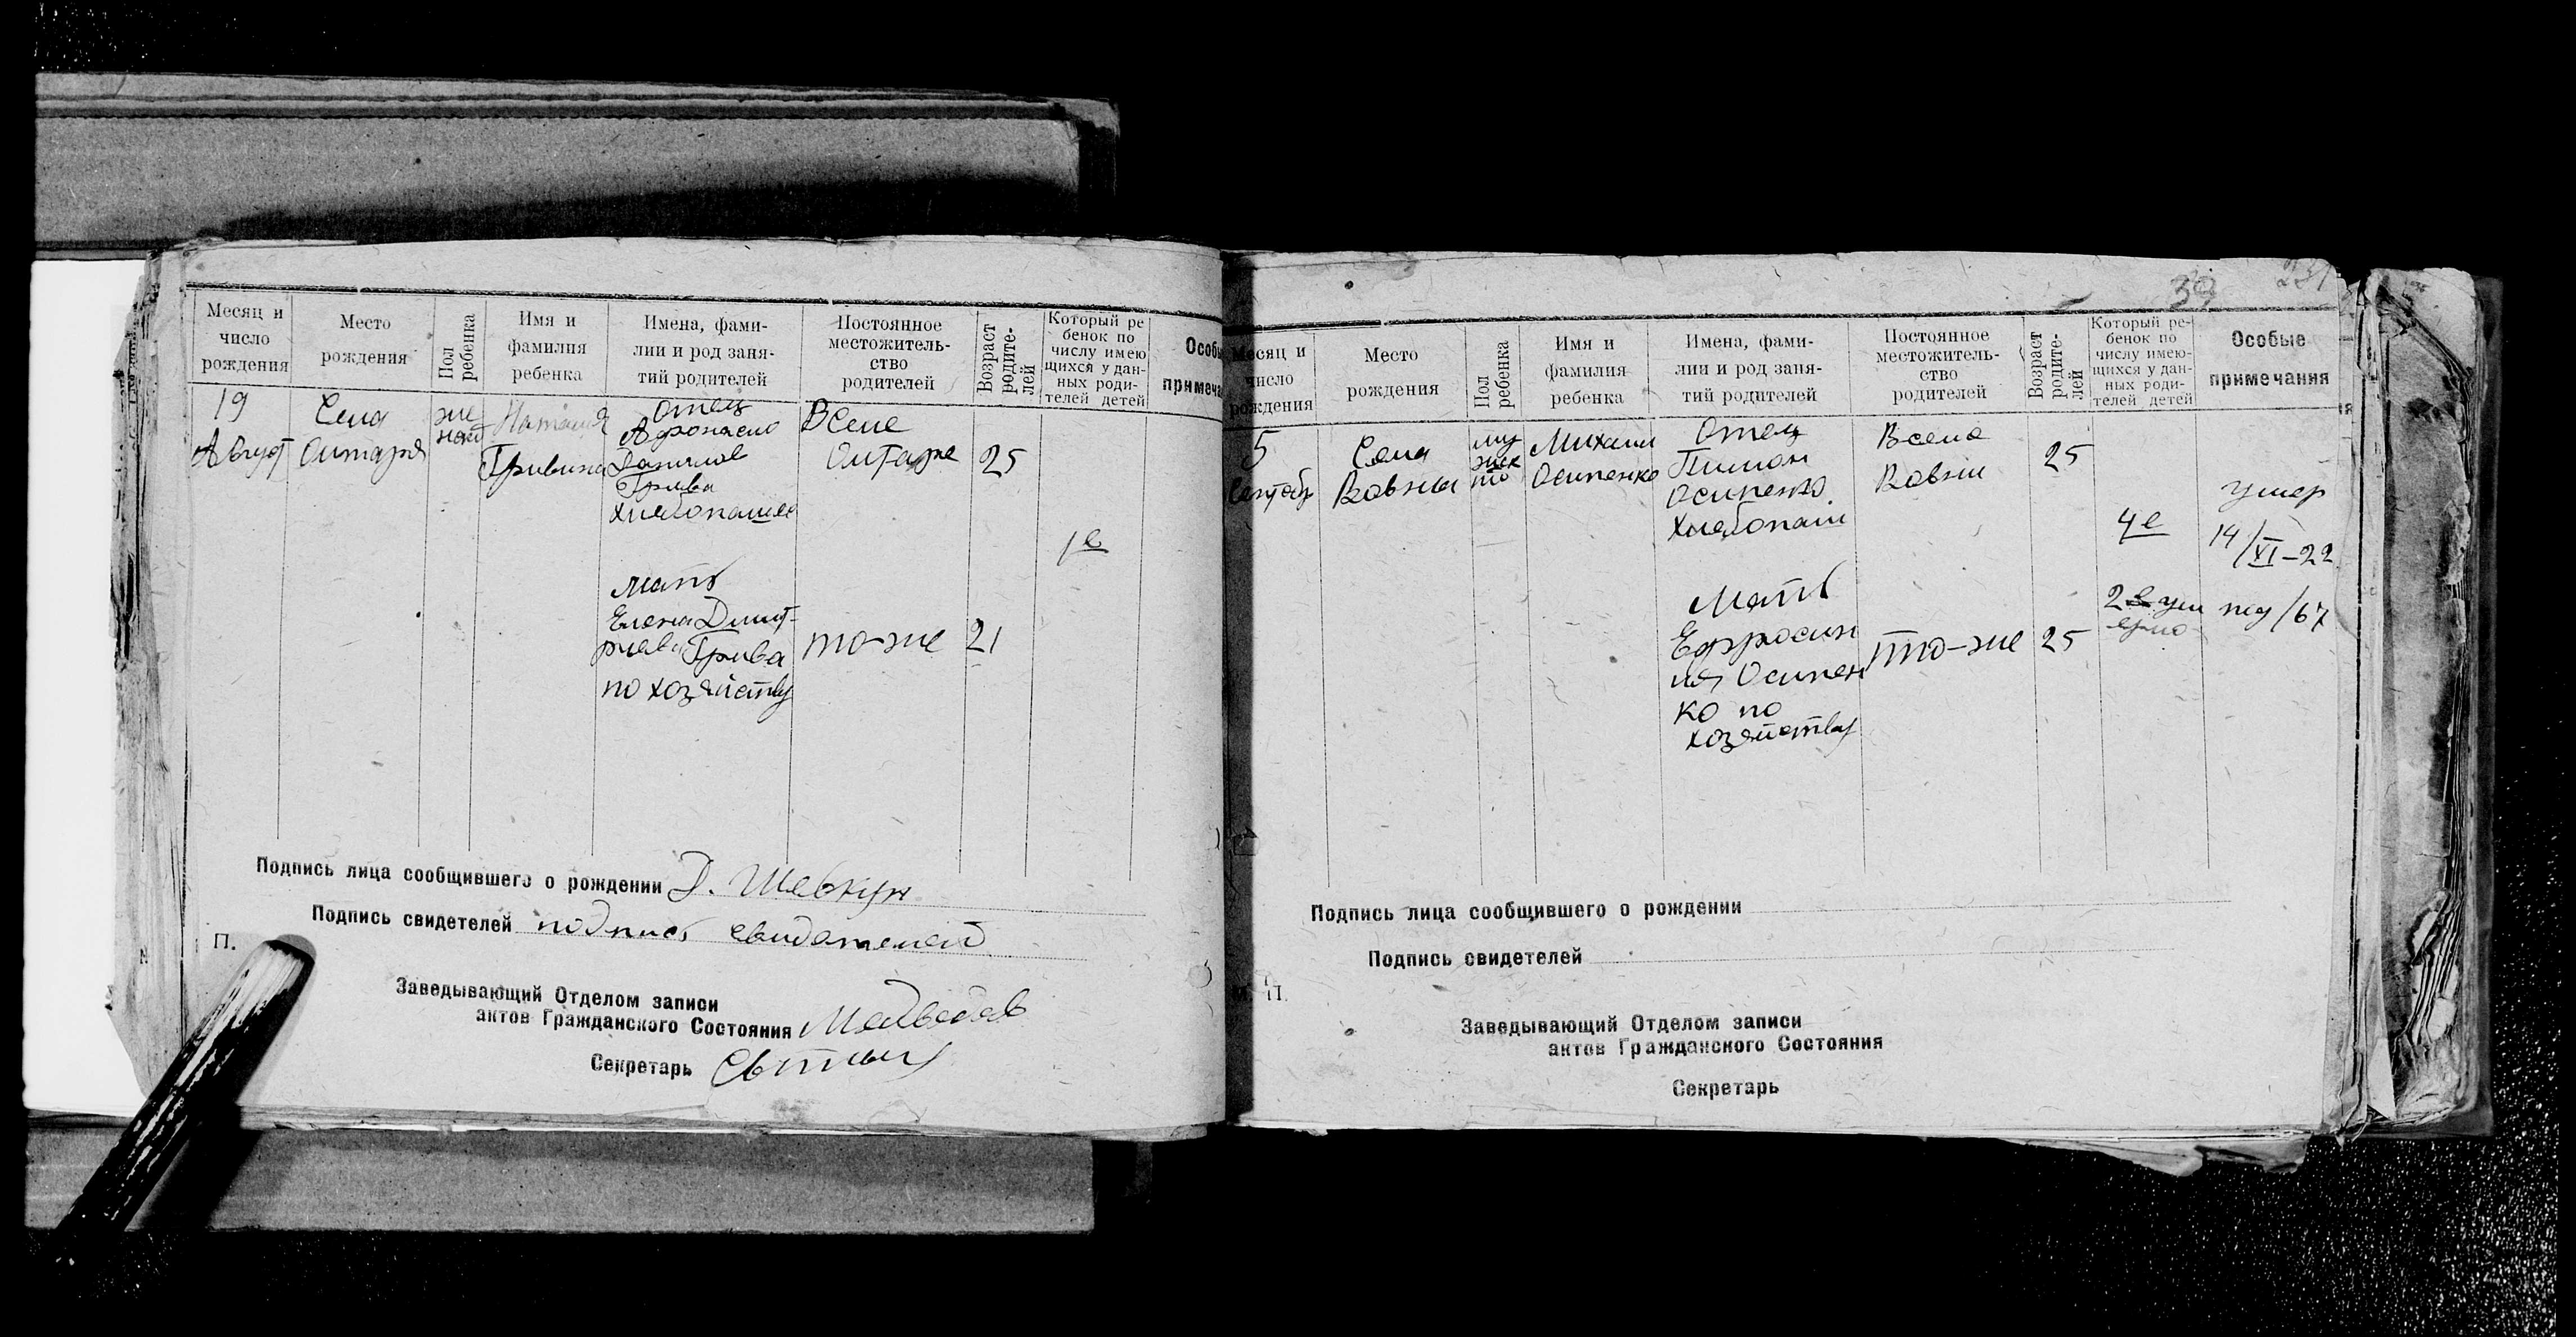 Месяц и число рождения
Место рождения
Пол ребенка
Имя и фамилия ребенка
Имена, фами-
лии и род заня-
тий родителей
Постоянное
местожитель-
ство
родителей
Возраст
родите-
лей
Который ре
бенок по
числу имею
щихся у дан-
ных роди-
телей детей
Особы
примеча
19
Август
Села
же
Наталия
Гривина
отец
Данилов
Грива
В Селе
25
1е
мать
Елена Дмит-
риев Грива
по хозяйству
то-же
21
Подпись лица сообщившего о рождении Д. Шевкун
Подпись свидетелей подпись свидетелей
П.
Заведывающий Отделом записи
актов Гражданского Состояния Медведев
Секретарь
39
231
Месяц и
число
рождения
Место
рождения
Пол
ребенка
Имя и
фамилия
ребенка
Имена, фами-
лии и род заня-
тий родителей
Постоянное
местожитель-
ство
родителей
Возраст
родите-
лей
Который ре-
бенок по
числу имею-
щихся у дан-
ных роди-
телей детей
Особые
примечания
5
Села
Вовны
му
жск
Михаил
Осипенко
Отец
Пимон
Осипенко
хлебопаш
В селе
Вовни
25
4е
умер
14/XI-22
под/67
Мать
Ефросин
ия Осипен
ко по
хозяйству
то-же
25
Подпись лица сообщившего о рождении
Подпись свидетелей
П.
Заведывающий Отделом записи
актов Гражданского Состояния
Секретарь